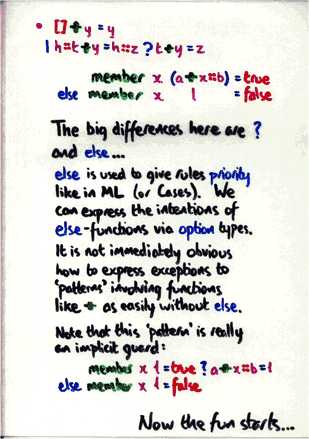 • [] ++ y = y
| h::t ++ y = h::z ? t ++ y = z
member x (a ++ x::b) = true
else member x l = false
The big differences here are ?
and else...
else is used to give rules priority
like in ML (or Cases). We
can express the intentions of
else-functions via option types.
It is not immediately obvious
how to express exceptions to
'patterns' involving functions
like ++ as easily without else.
Note that this 'pattern' is really
an implicit guard:
member x l = true ? a ++ x::b = l
else member x l = false
Now the fun starts...